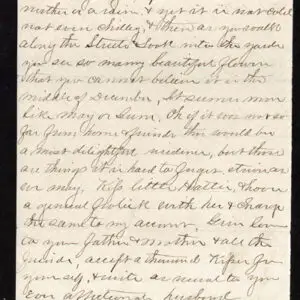 mother is a rain, & yet it is not cold
not even chilley, & then as you walk
along the Streets & look into the yards
you see so many beautiful flowers
that you can not believe it is the
middle of December, It seems more
like May or June. Oh if it was not so
far from home & friends this would be
a most delightful residence, but those
are things it is hard to forget, strive as
we may. Kiss little Hattie, & have
a general frolick with her & charge
the same to my account, Give Love
to your father & Mother & all the
friends, accept a thousand Kisses for
yourself, & write as usual to you
affectionate husband